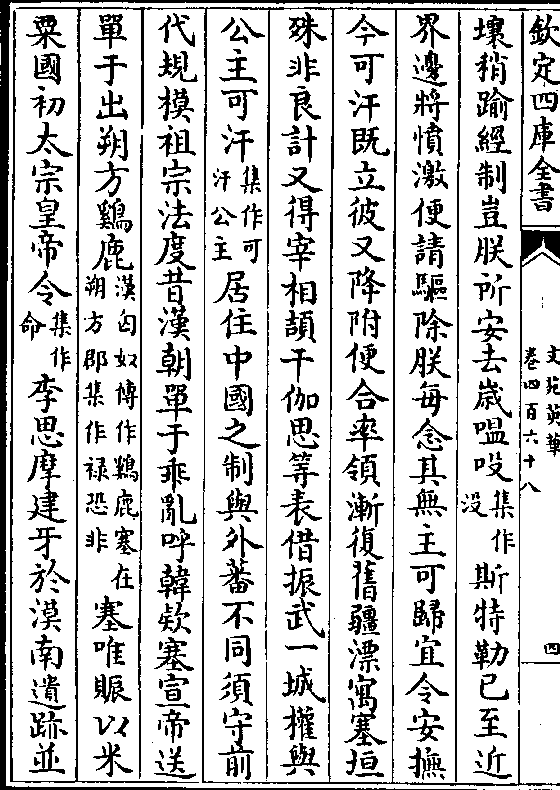 欽定四庫全書
文苑英華
卷四百六十八
四
壤稍踰經制豈朕所安去歲嗢吺集作没斯特勒已至近
界邊將憤激便請驅除朕每念其無主可歸宜令安撫
今可汗既立彼又降附便合率領漸復舊疆漂寓塞垣
殊非良計又得宰相頡干伽思等表借振武一城權與
公主可汗集作可汗公主居住中國之制與外蕃不同須守前
代規模祖宗法度昔漢朝單于乖亂呼韓欵塞宣帝送
單于出朔方鷄鹿漢匈奴傳作鷄鹿塞在朔方郡集作禄恐非塞唯賑以米
粟國初太宗皇帝令集作命李思摩建牙於漠南遺跡並